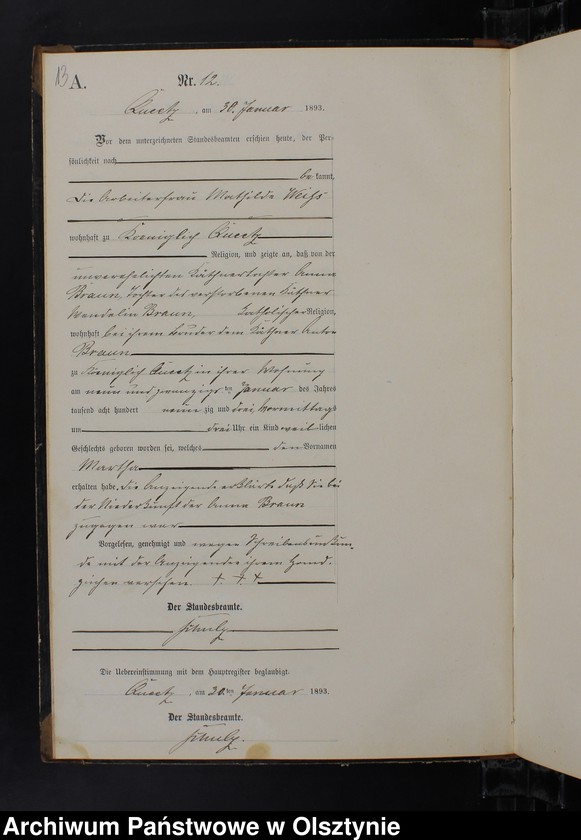 13 A. Nr. 12.
Queetz, am 30. Januar 1893.
Vor dem unterzeichneten Standesbeamten erschien heute, der Per-
sönlichkeit nach
be kannt,
die Arbeiterfrau Mathilde Weiß
wohnhaft zu Koeniglich Queetz
Religion, und zeigte an, daß von der
unverehelichten Käthnertochter Anna
Braun, Tochter des verstorbenen Käthner
Wendelin Braun, katholischer Religion,
wohnhaft bei ihrem Bruder dem Käthner Anton
Braun
zu Koeniglich Queetz in ihrer Wohnung
am neun und zwanzigsten Januar des Jahres
tausend acht hundert neunzig und drei, Vormittags
um drei Uhr ein Kind weiblichen
Geschlechts geboren worden sei, welches den Vornamen
Martha
erhalten habe. Die Anzeigende erklärte daß sie bei
der Niederkunft der Anna Braun
zugegen war
Vorgelesen, genehmigt und wegen Schreibensunkun-
de mit der Anzeigenden ihrem Hand-
zeichen versehen. † † †
Der Standesbeamte.
Schulz
Die Uebereinstimmung mit dem Hauptregister beglaubigt.
Queetz, am 30ten Januar 1893.
Der Standesbeamte.
Schulz.
Archiwum Państwowe w Olsztynie